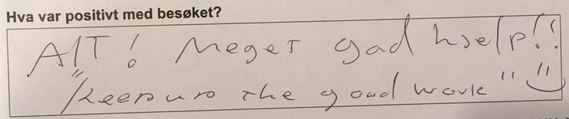 Hva var positivt med besøket?
AlT! Meget god hjelp!!
"Keep up the good work"